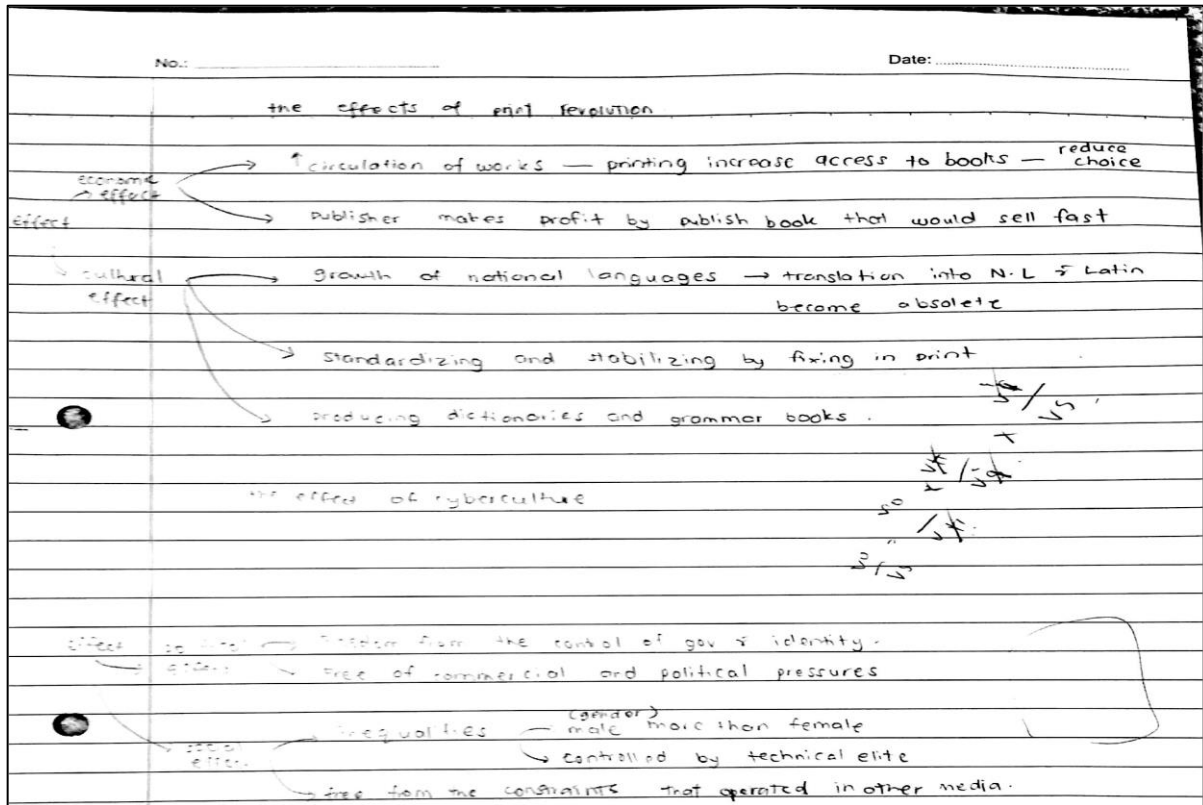 No.: Date:
the effects of print revolution
↑ circulation of works — printing increase access to books — reduce choice
economic effect
effect
publisher makes profit by publish book that would sell fast
cultural effect
growth of national languages → translation into N.L & Latin
become absolete
standardizing and stabilizing by fixing in print
producing dictionaries and grammar books.
the effect of cyberculture
effect political effect freedom from the control of gov & identity.
free of commercial and political pressures
inequalities — (gender) male more than female
social effect
controlled by technical elite
free from the constraints that operated in other media.